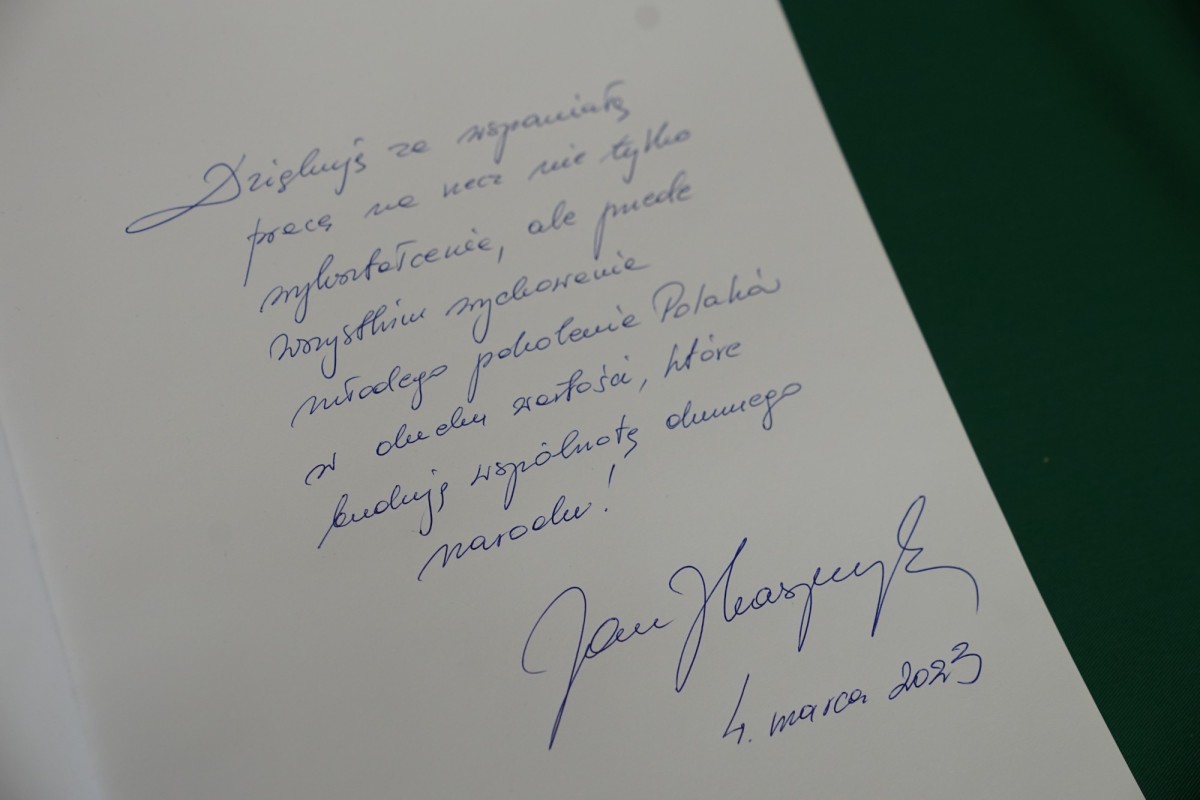 Dziękuję za wspaniałą
pracę na rzecz nie tylko
wykształcenia, ale przede
wszystkim wychowania
młodego pokolenia Polaków
w duchu wartości, które
budują wspólnotę dumnego
narodu!
Jan
4. marca 2023